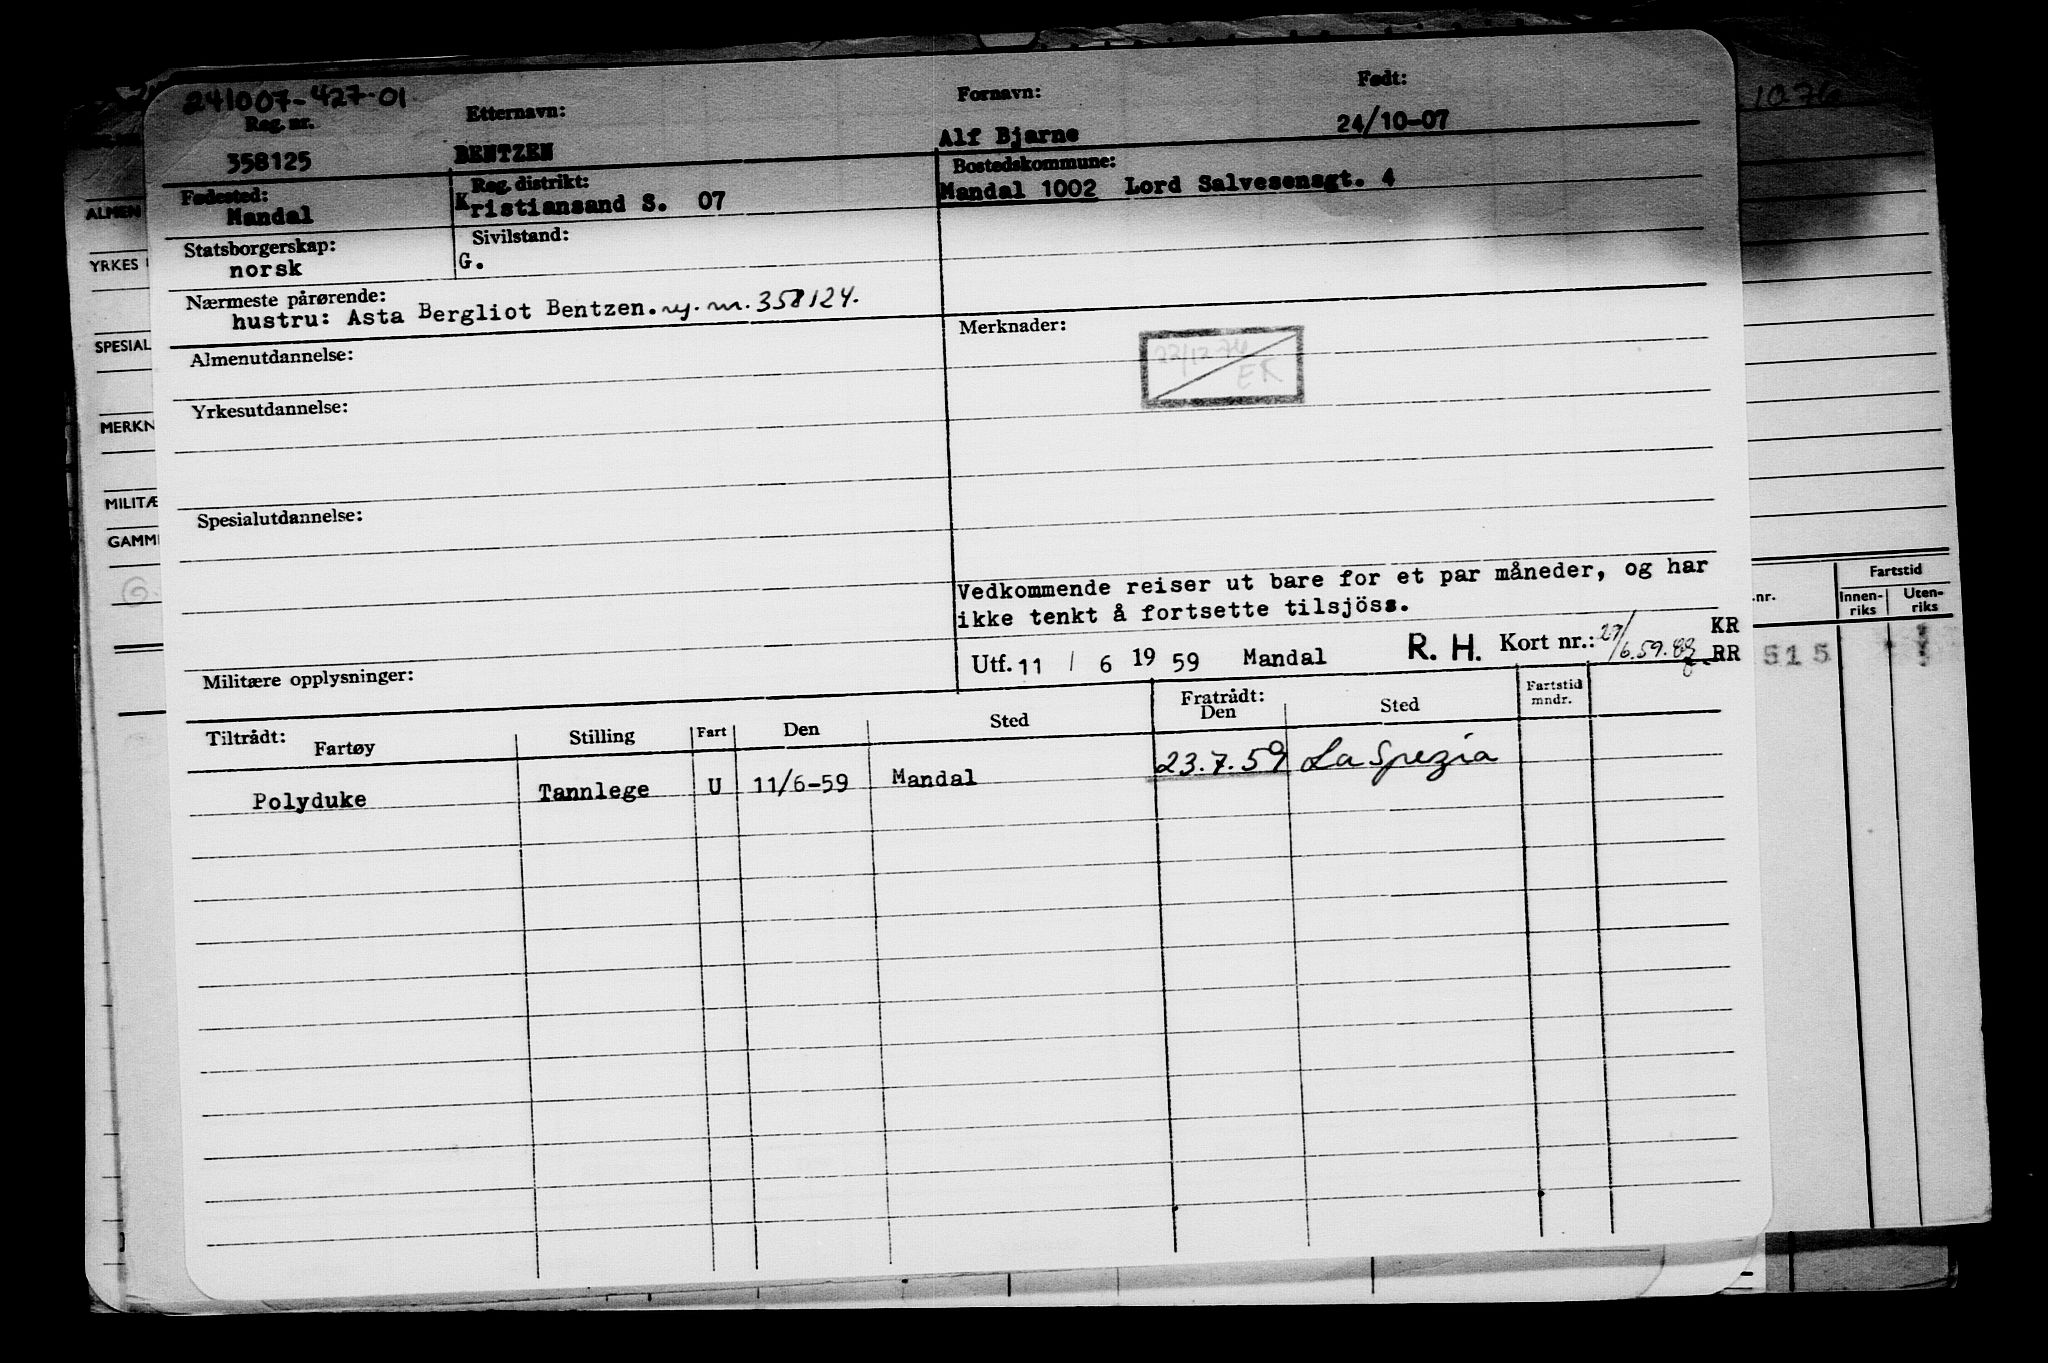 241007-427-01
Reg. nr. Etternavn: Fornavn: Født:
358125 BENTZEN Alf Bjarne 24/10-07
Fødested: Reg. distrikt: Bostedskommune:
Mandal Kristiansand S. 07 Mandal 1002 Lord Salvesensgt. 4
Statsborgerskap: Sivilstand:
norsk G.
Nærmeste pårørende:
hustru: Asta Bergliot Bentzen. reg. nr. 358124.
Almenutdannelse: Merknader:
ER
Yrkesutdannelse:
Spesialutdannelse:
Vedkommende reiser ut bare for et par måneder, og har
ikke tenkt å fortsette tilsjöss.
Militære opplysninger: Utf. 11 / 6 19 59 Mandal R. H. Kort nr.: KR
RR
Tiltrådt: Fartøy Stilling Fart Den Sted Fratrådt: Den Sted Fartstid mndr.
Polyduke Tannlege U 11/6-59 Mandal 23.7.59 La Spezia
ALMEN
YRKES
SPESIAL
MERKN
MILITÆ
GAMM
Fartstid
.nr. Innen-riks Uten-riks
515